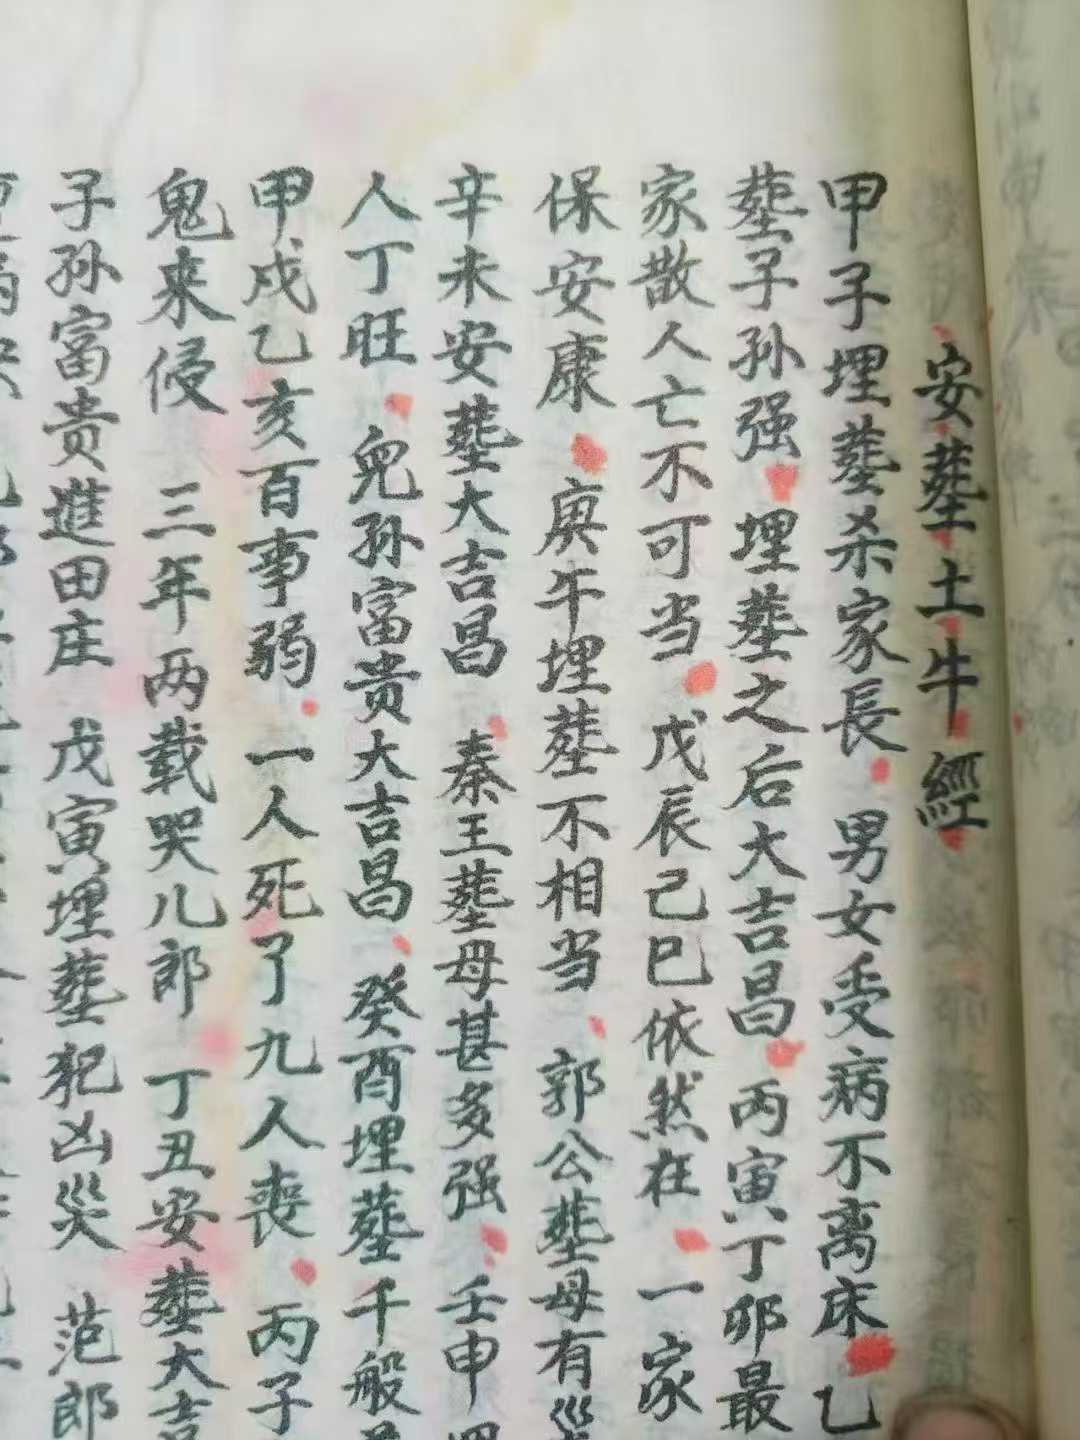 安葬土牛經
甲子埋葬杀家長 男女受病不离床 乙
葬子孙强 埋葬之后大吉昌 丙寅丁卯最
家散人亡不可当 戊辰己巳依然在 一家
保安康 庚午埋葬不相当 郭公葬母有災
辛未安葬大吉昌 秦王葬母甚多强 壬申
人丁旺 兒孙富贵大吉昌 癸酉埋葬千般
甲戍乙亥百事弱 一人死了九人丧 丙子
鬼来侵 三年两载哭儿郎 丁丑安葬大吉
子孙富贵進田庄 戊寅埋葬犯凶災 范郎